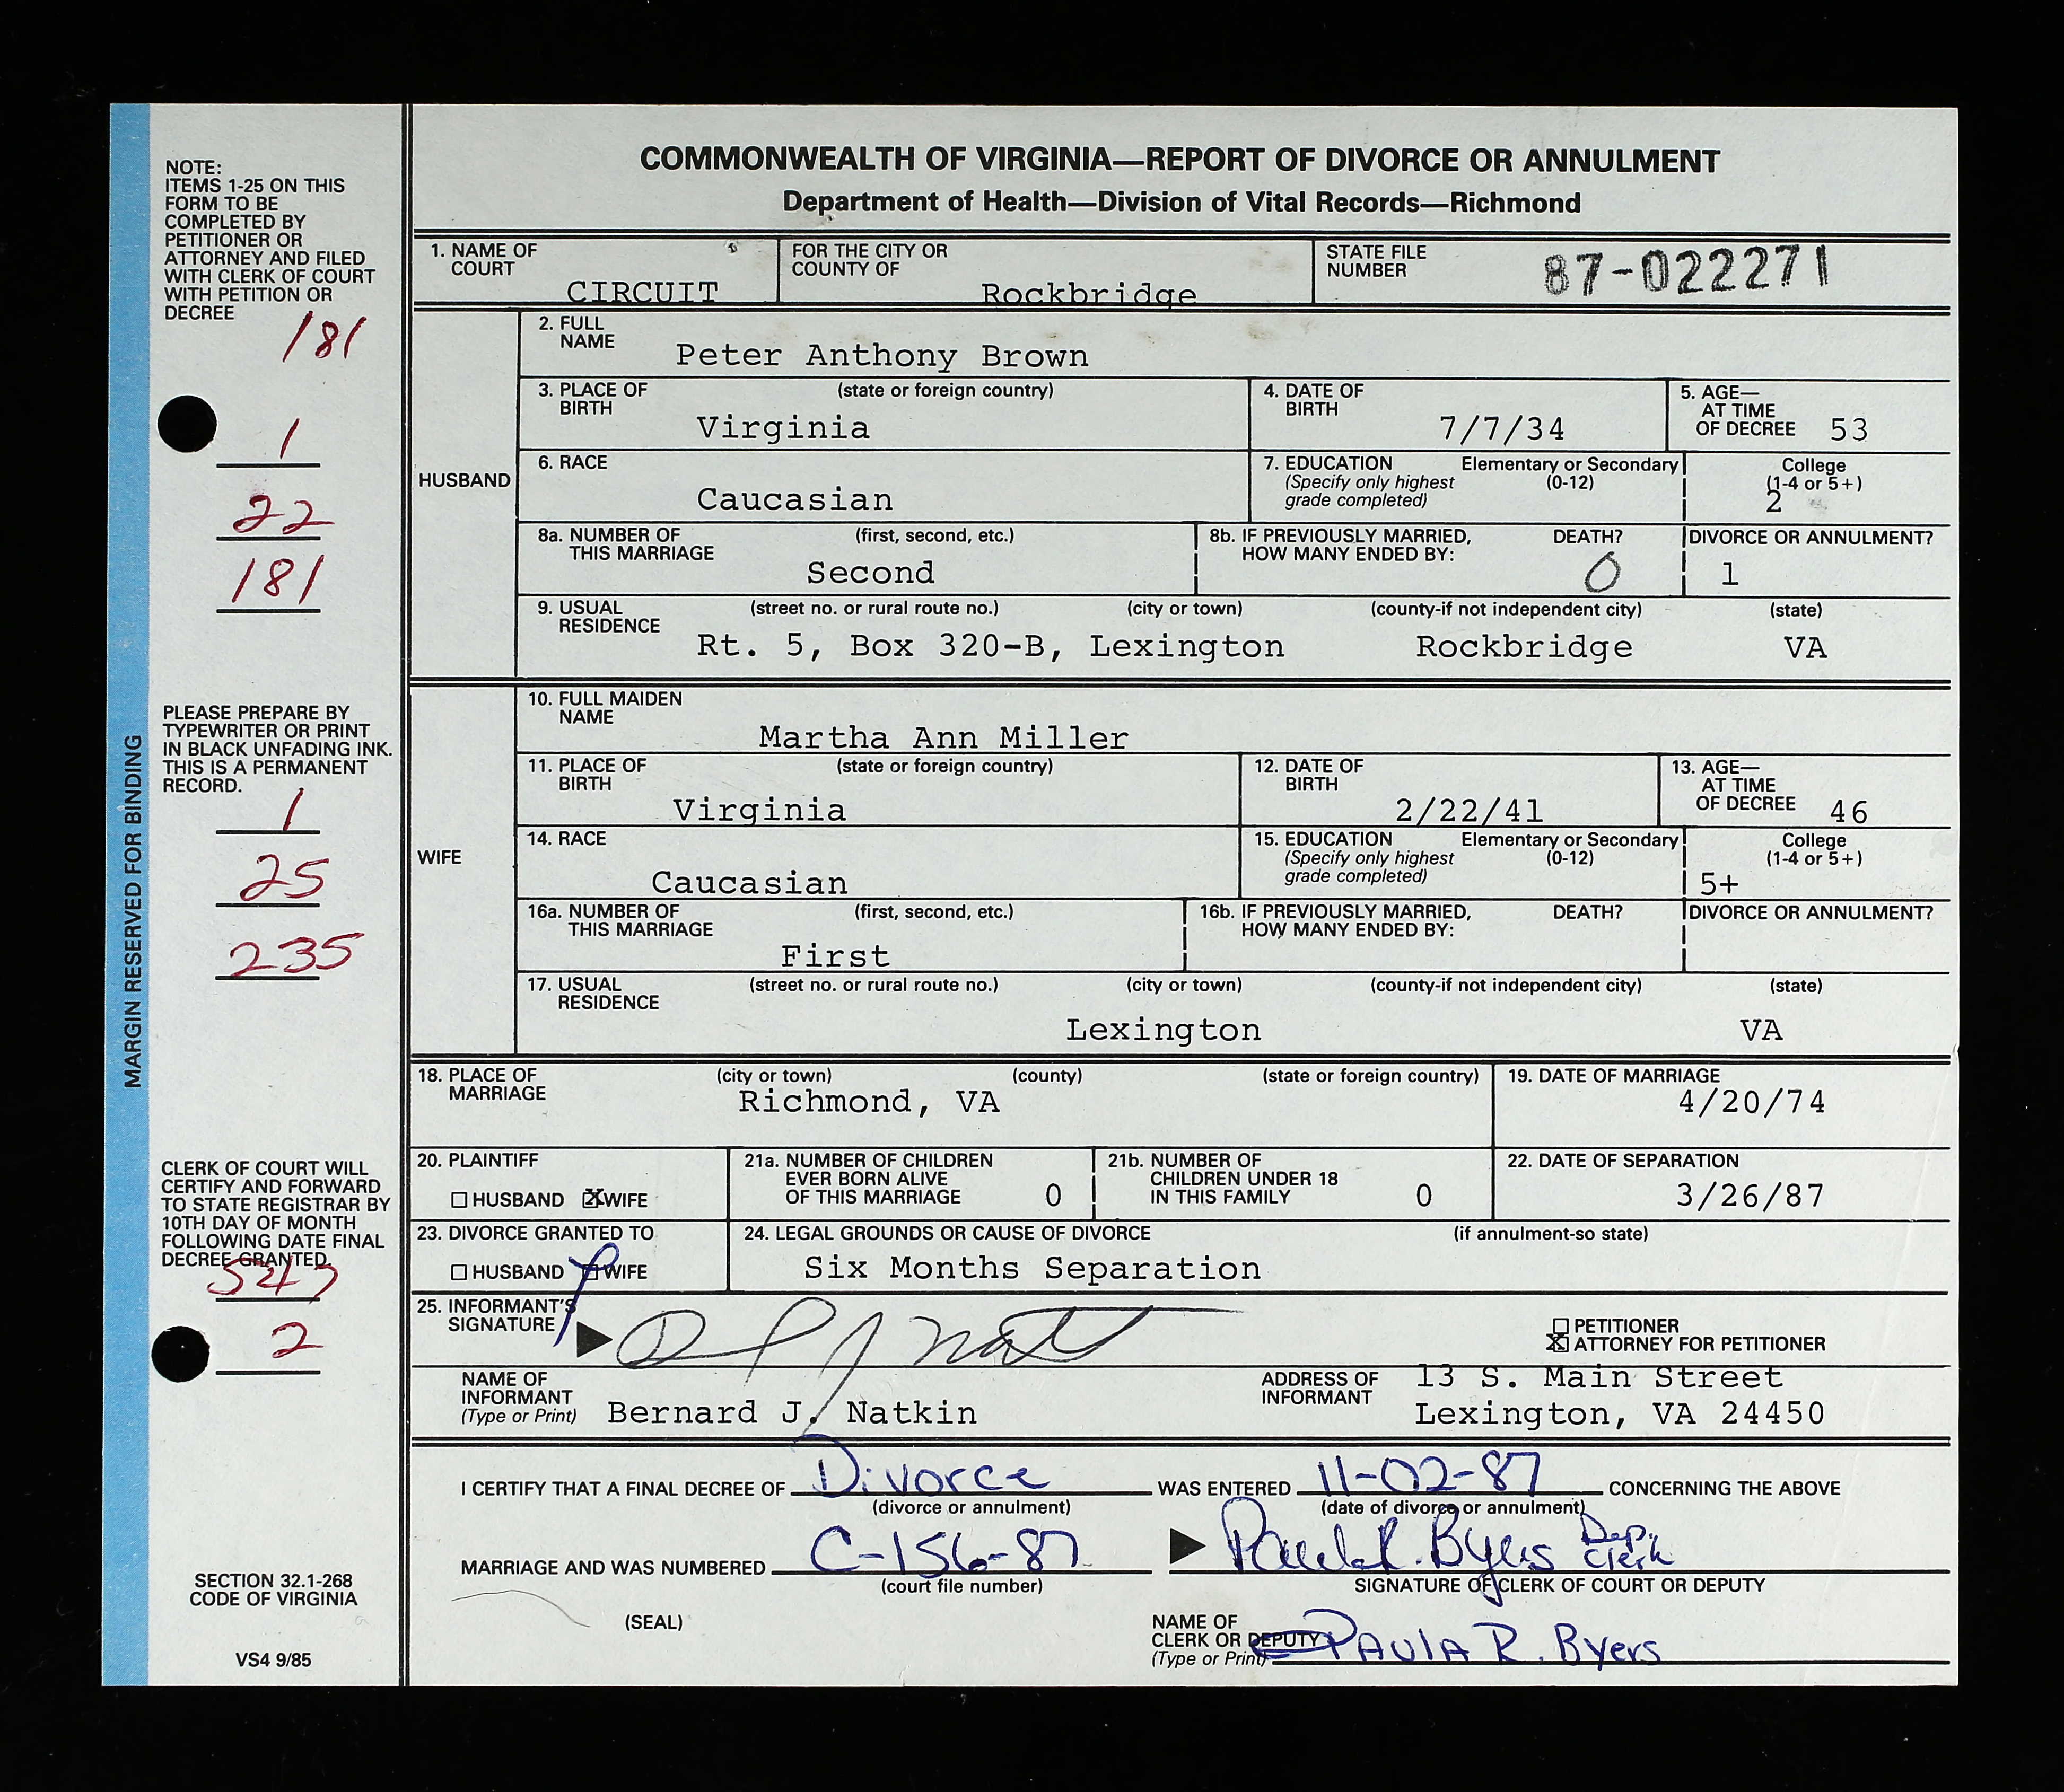 COMMONWEALTH OF VIRGINIA—REPORT OF DIVORCE OR ANNULMENT
Department of Health—Division of Vital Records—Richmond
NOTE:
ITEMS 1-25 ON THIS
FORM TO BE
COMPLETED BY
PETITIONER OR
ATTORNEY AND FILED
WITH CLERK OF COURT
WITH PETITION OR
DECREE
181
1
22
181
PLEASE PREPARE BY
TYPEWRITER OR PRINT
IN BLACK UNFADING INK.
THIS IS A PERMANENT
RECORD.
1
25
235
MARGIN RESERVED FOR BINDING
CLERK OF COURT WILL
CERTIFY AND FORWARD
TO STATE REGISTRAR BY
10TH DAY OF MONTH
FOLLOWING DATE FINAL
DECREE GRANTED.
2
SECTION 32.1-268
CODE OF VIRGINIA
VS4 9/85
1. NAME OF COURT CIRCUIT
FOR THE CITY OR COUNTY OF Rockbridge
STATE FILE NUMBER 87-022271
HUSBAND
2. FULL NAME Peter Anthony Brown
3. PLACE OF BIRTH (state or foreign country) Virginia
4. DATE OF BIRTH 7/7/34
5. AGE— AT TIME OF DECREE 53
6. RACE Caucasian
7. EDUCATION (Specify only highest grade completed) Elementary or Secondary (0-12) College (1-4 or 5+) 2
8a. NUMBER OF THIS MARRIAGE (first, second, etc.) Second
8b. IF PREVIOUSLY MARRIED, HOW MANY ENDED BY: DEATH? 0 DIVORCE OR ANNULMENT? 1
9. USUAL RESIDENCE (street no. or rural route no.) (city or town) (county-if not independent city) (state)
Rt. 5, Box 320-B, Lexington Rockbridge VA
WIFE
10. FULL MAIDEN NAME Martha Ann Miller
11. PLACE OF BIRTH (state or foreign country) Virginia
12. DATE OF BIRTH 2/22/41
13. AGE— AT TIME OF DECREE 46
14. RACE Caucasian
15. EDUCATION (Specify only highest grade completed) Elementary or Secondary (0-12) College (1-4 or 5+) 5+
16a. NUMBER OF THIS MARRIAGE (first, second, etc.) First
16b. IF PREVIOUSLY MARRIED, HOW MANY ENDED BY: DEATH? DIVORCE OR ANNULMENT?
17. USUAL RESIDENCE (street no. or rural route no.) (city or town) (county-if not independent city) (state)
Lexington VA
18. PLACE OF MARRIAGE (city or town) (county) (state or foreign country) Richmond, VA
19. DATE OF MARRIAGE 4/20/74
20. PLAINTIFF HUSBAND X WIFE
21a. NUMBER OF CHILDREN EVER BORN ALIVE OF THIS MARRIAGE 0
21b. NUMBER OF CHILDREN UNDER 18 IN THIS FAMILY 0
22. DATE OF SEPARATION 3/26/87
23. DIVORCE GRANTED TO HUSBAND WIFE
24. LEGAL GROUNDS OR CAUSE OF DIVORCE (if annulment-so state)
Six Months Separation
25. INFORMANT'S SIGNATURE
PETITIONER
X ATTORNEY FOR PETITIONER
NAME OF INFORMANT (Type or Print) Bernard J. Natkin
ADDRESS OF INFORMANT 13 S. Main Street
Lexington, VA 24450
I CERTIFY THAT A FINAL DECREE OF Divorce WAS ENTERED 11-02-87 CONCERNING THE ABOVE
(divorce or annulment) (date of divorce or annulment)
MARRIAGE AND WAS NUMBERED C-156-87 Paula R. Byers Dep. Clerk
(court file number) SIGNATURE OF CLERK OF COURT OR DEPUTY
(SEAL)
NAME OF CLERK OR DEPUTY (Type or Print) PAULA R. Byers